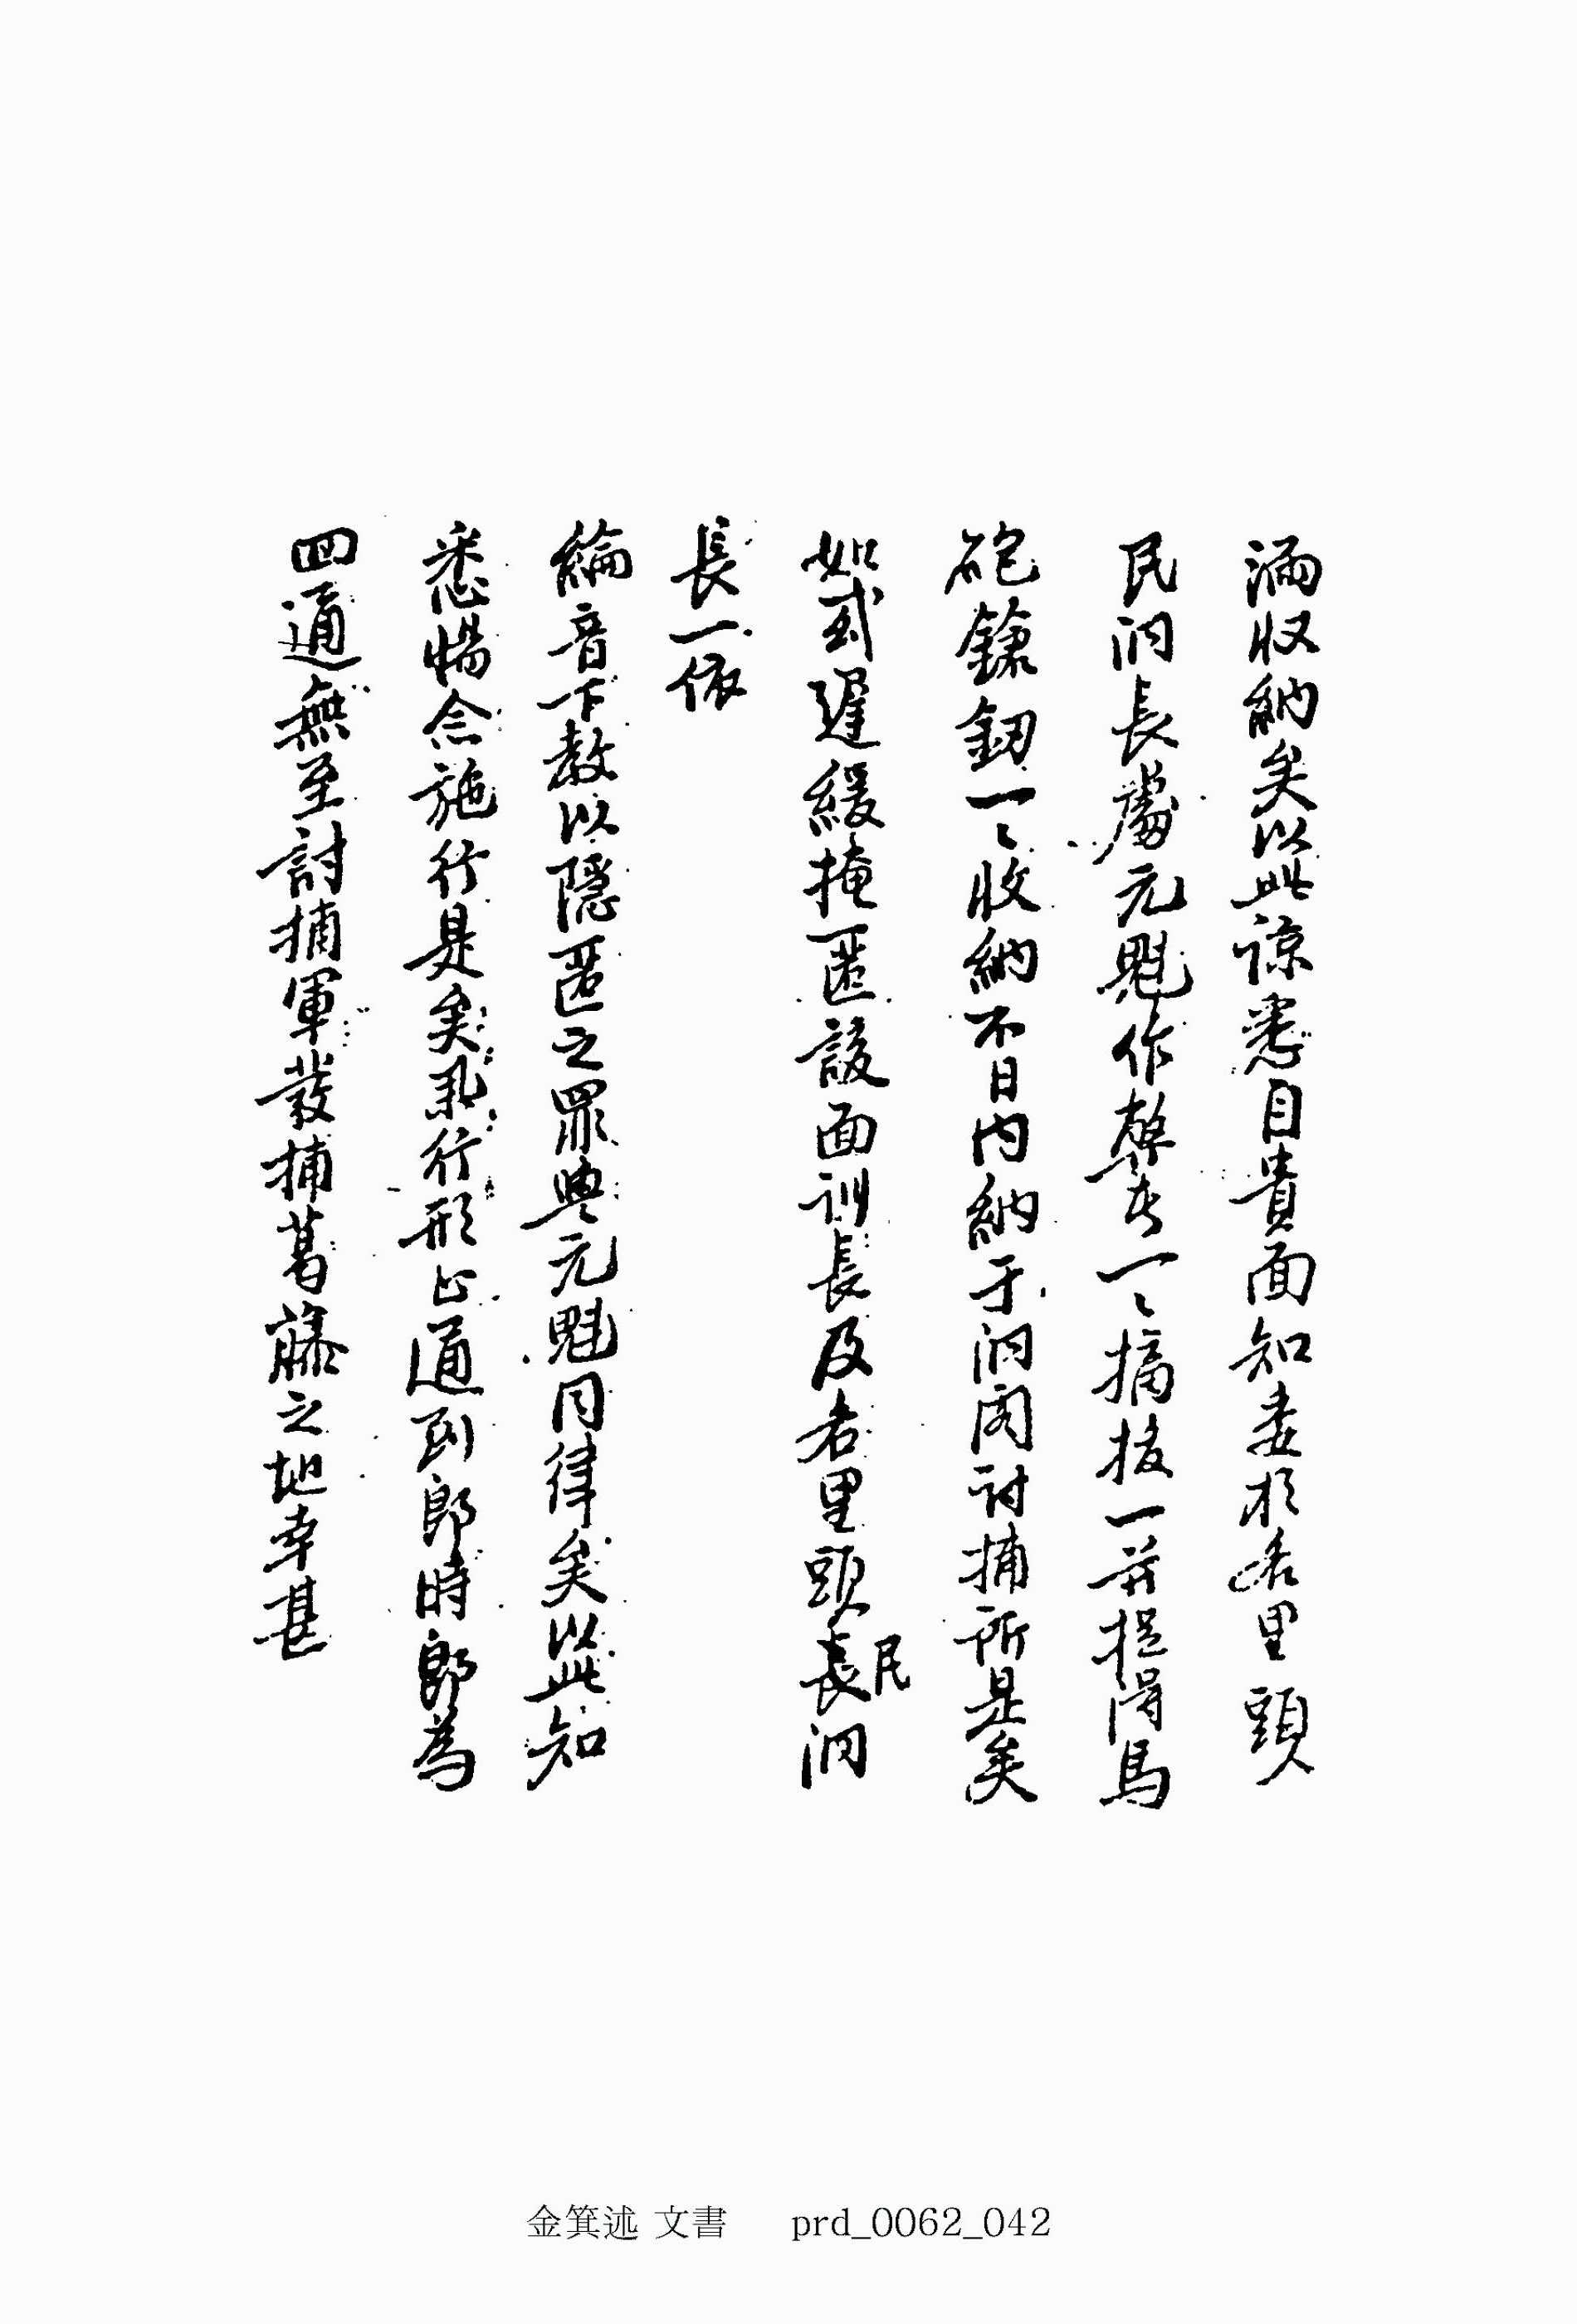 漏收納矣以此諒悉自貴面知委於各里頭
民洞長處元魁作孼者一〻摘拔一并捉得馬
砲鎗釰一〻收納不日內納于洞閣討捕所是矣
如或遲緩掩匿該面訓長及各里頭民長洞
長一依
綸音下敎以隱匿之罪與元魁同律矣以此知
悉惕念施行是矣乳行形止通到卽時卽爲
回通無至討捕軍發捕葛藤之地幸甚
金箕述 文書 prd_0062_042